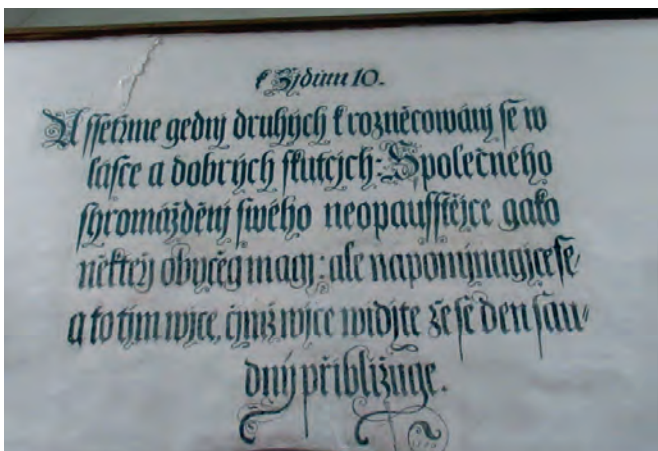 k Židům 10.
A ssetřme gedny druhých k rozněcowánj sě w
lásce a dobrých skutcých: Společného
shromážděnj swého neopausstěgjce gako
někteřj obyčeg magj: ale napomjnagjce sě,
a to tjm wjce, čjmž wjce widjte že sě den sau-
dný přibližuge.